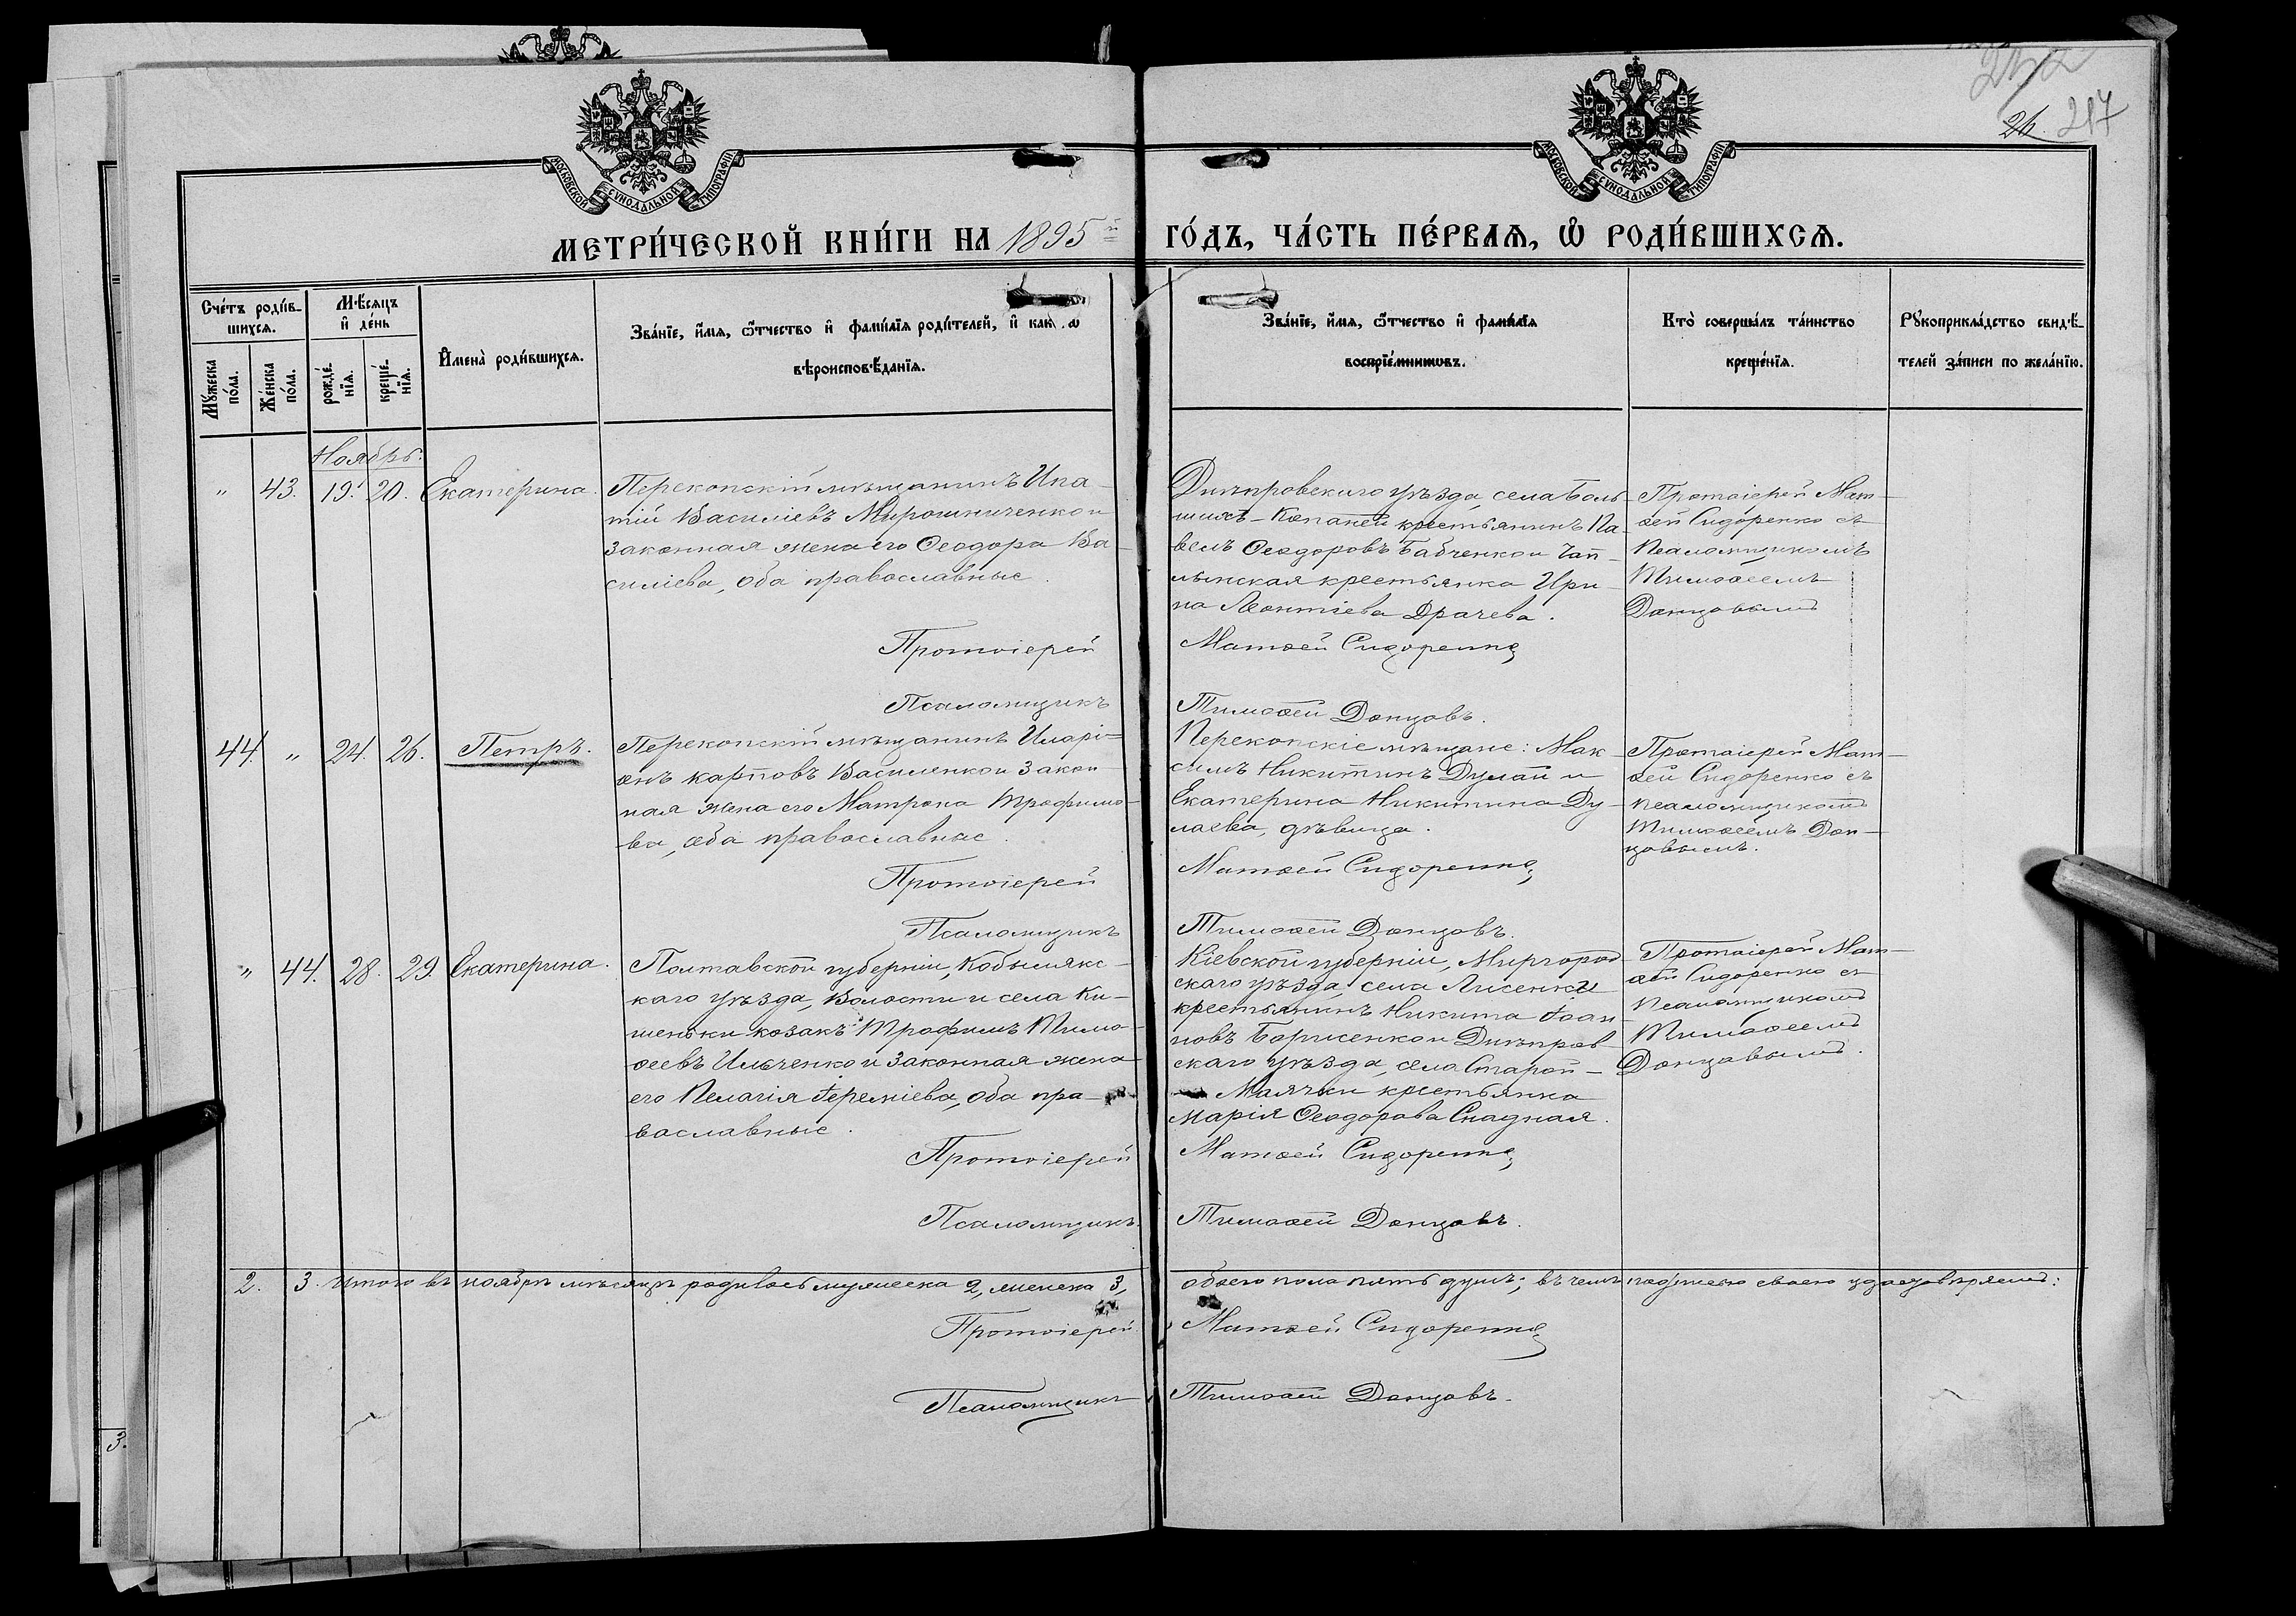 247
МОСКОВСКОЙ СѴНОДАЛЬНОЙ ТИПОГРАФІИ
МОСКОВСКОЙ СѴНОДАЛЬНОЙ ТИПОГРАФІИ
МЕТРИ́ЧЕСКОЙ КНИ́ГИ НА 1895й ГО́ДЪ, ЧА́СТЬ ПЕ́РВАѦ, Ѡ҆ РОДИ́ВШИХСѦ.
Сче́тъ роди́в-
шихсѧ.
Мꙋ́жеска по́ла.
Же́нска по́ла.
Мѣ́сѧцъ
и҆ де́нь
рожде́-
нїѧ.
креще́-
нїѧ.
И҆мена̀ роди́вшихсѧ.
Зва́нїе, и҆́мѧ, ѻ҆́тчество и҆ фами́лїѧ роди́телей, и҆ како́гѡ
вѣроисповѣ́данїѧ.
Зва́нїе, и҆́мѧ, ѻ҆́тчество и҆ фами́лїѧ
воспрїе́мникѡвъ.
Кто̀ соверша́лъ та́инство
креще́нїѧ.
Рꙋкоприкла́дство свидѣ́-
телей за́писи по жела́нїю.
Ноябрь.
" 43. 19. 20. Екатерина.
Перекопскій мѣщанинъ Ипа-
тій Василіевъ Мирошниченко и
законная жена его Ѳеодора Ва-
силіева, оба православные.
Днѣпровскаго уѣзда, села Боль-
шихъ-Копаней крестьянинъ Па-
велъ Ѳеодоровъ Бабченко и Чап-
лынская крестьянка Ири-
на Леонтіева Драчева.
Протоіерей Мат-
ѳей Сидоренко съ
псаломщикомъ
Тимоѳеемъ
Донцовымъ
Протоіерей Матѳей Сидоренко
Псаломщикъ Тимоѳей Донцовъ.
44. " 24. 26. Петръ.
Перекопскій мѣщанинъ Иларі-
онъ Карповъ Василенко и закон-
ная жена его Матрона Трофимо-
ва, оба православные.
Перекопскіе мѣщане: Мак-
симъ Никитинъ Дулай и
Екатерина Никитина Ду-
лаева, дѣвица.
Протоіерей Мат-
ѳей Сидоренко съ
псаломщикомъ
Тимоѳеемъ Дон-
цовымъ.
Протоіерей Матѳей Сидоренко
Псаломщикъ Тимоѳей Донцовъ.
" 44. 28. 29. Екатерина.
Полтавской губерніи, Кобылякс-
каго уѣзда, волости и села Ки-
шеньки козакъ Трофимъ Тимо-
ѳеевъ Ильченко и законная жена
его Пелагія Іереміева, оба пра-
вославные.
Кіевской губерніи, Миргород-
скаго уѣзда, села Лисенки
крестьянинъ Никита Іоан-
новъ Борисенко и Днѣпров-
скаго уѣзда, села Старой-
Маячки крестьянка
Марія Ѳеодорова Снадная.
Протоіерей Мат-
ѳей Сидоренко съ
псаломщикомъ
Тимоѳеемъ
Донцовымъ.
Протоіерей Матѳей Сидоренко
Псаломщикъ Тимоѳей Донцовъ.
2. 3. Итого въ ноябрѣ мѣсяцѣ родилось мужеска 2, женска 3, обоего пола пять душъ; въ чемъ подписью своею удостовѣряемъ:
Протоіерей Матѳей Сидоренко
Псаломщикъ Тимоѳей Донцовъ.
3.